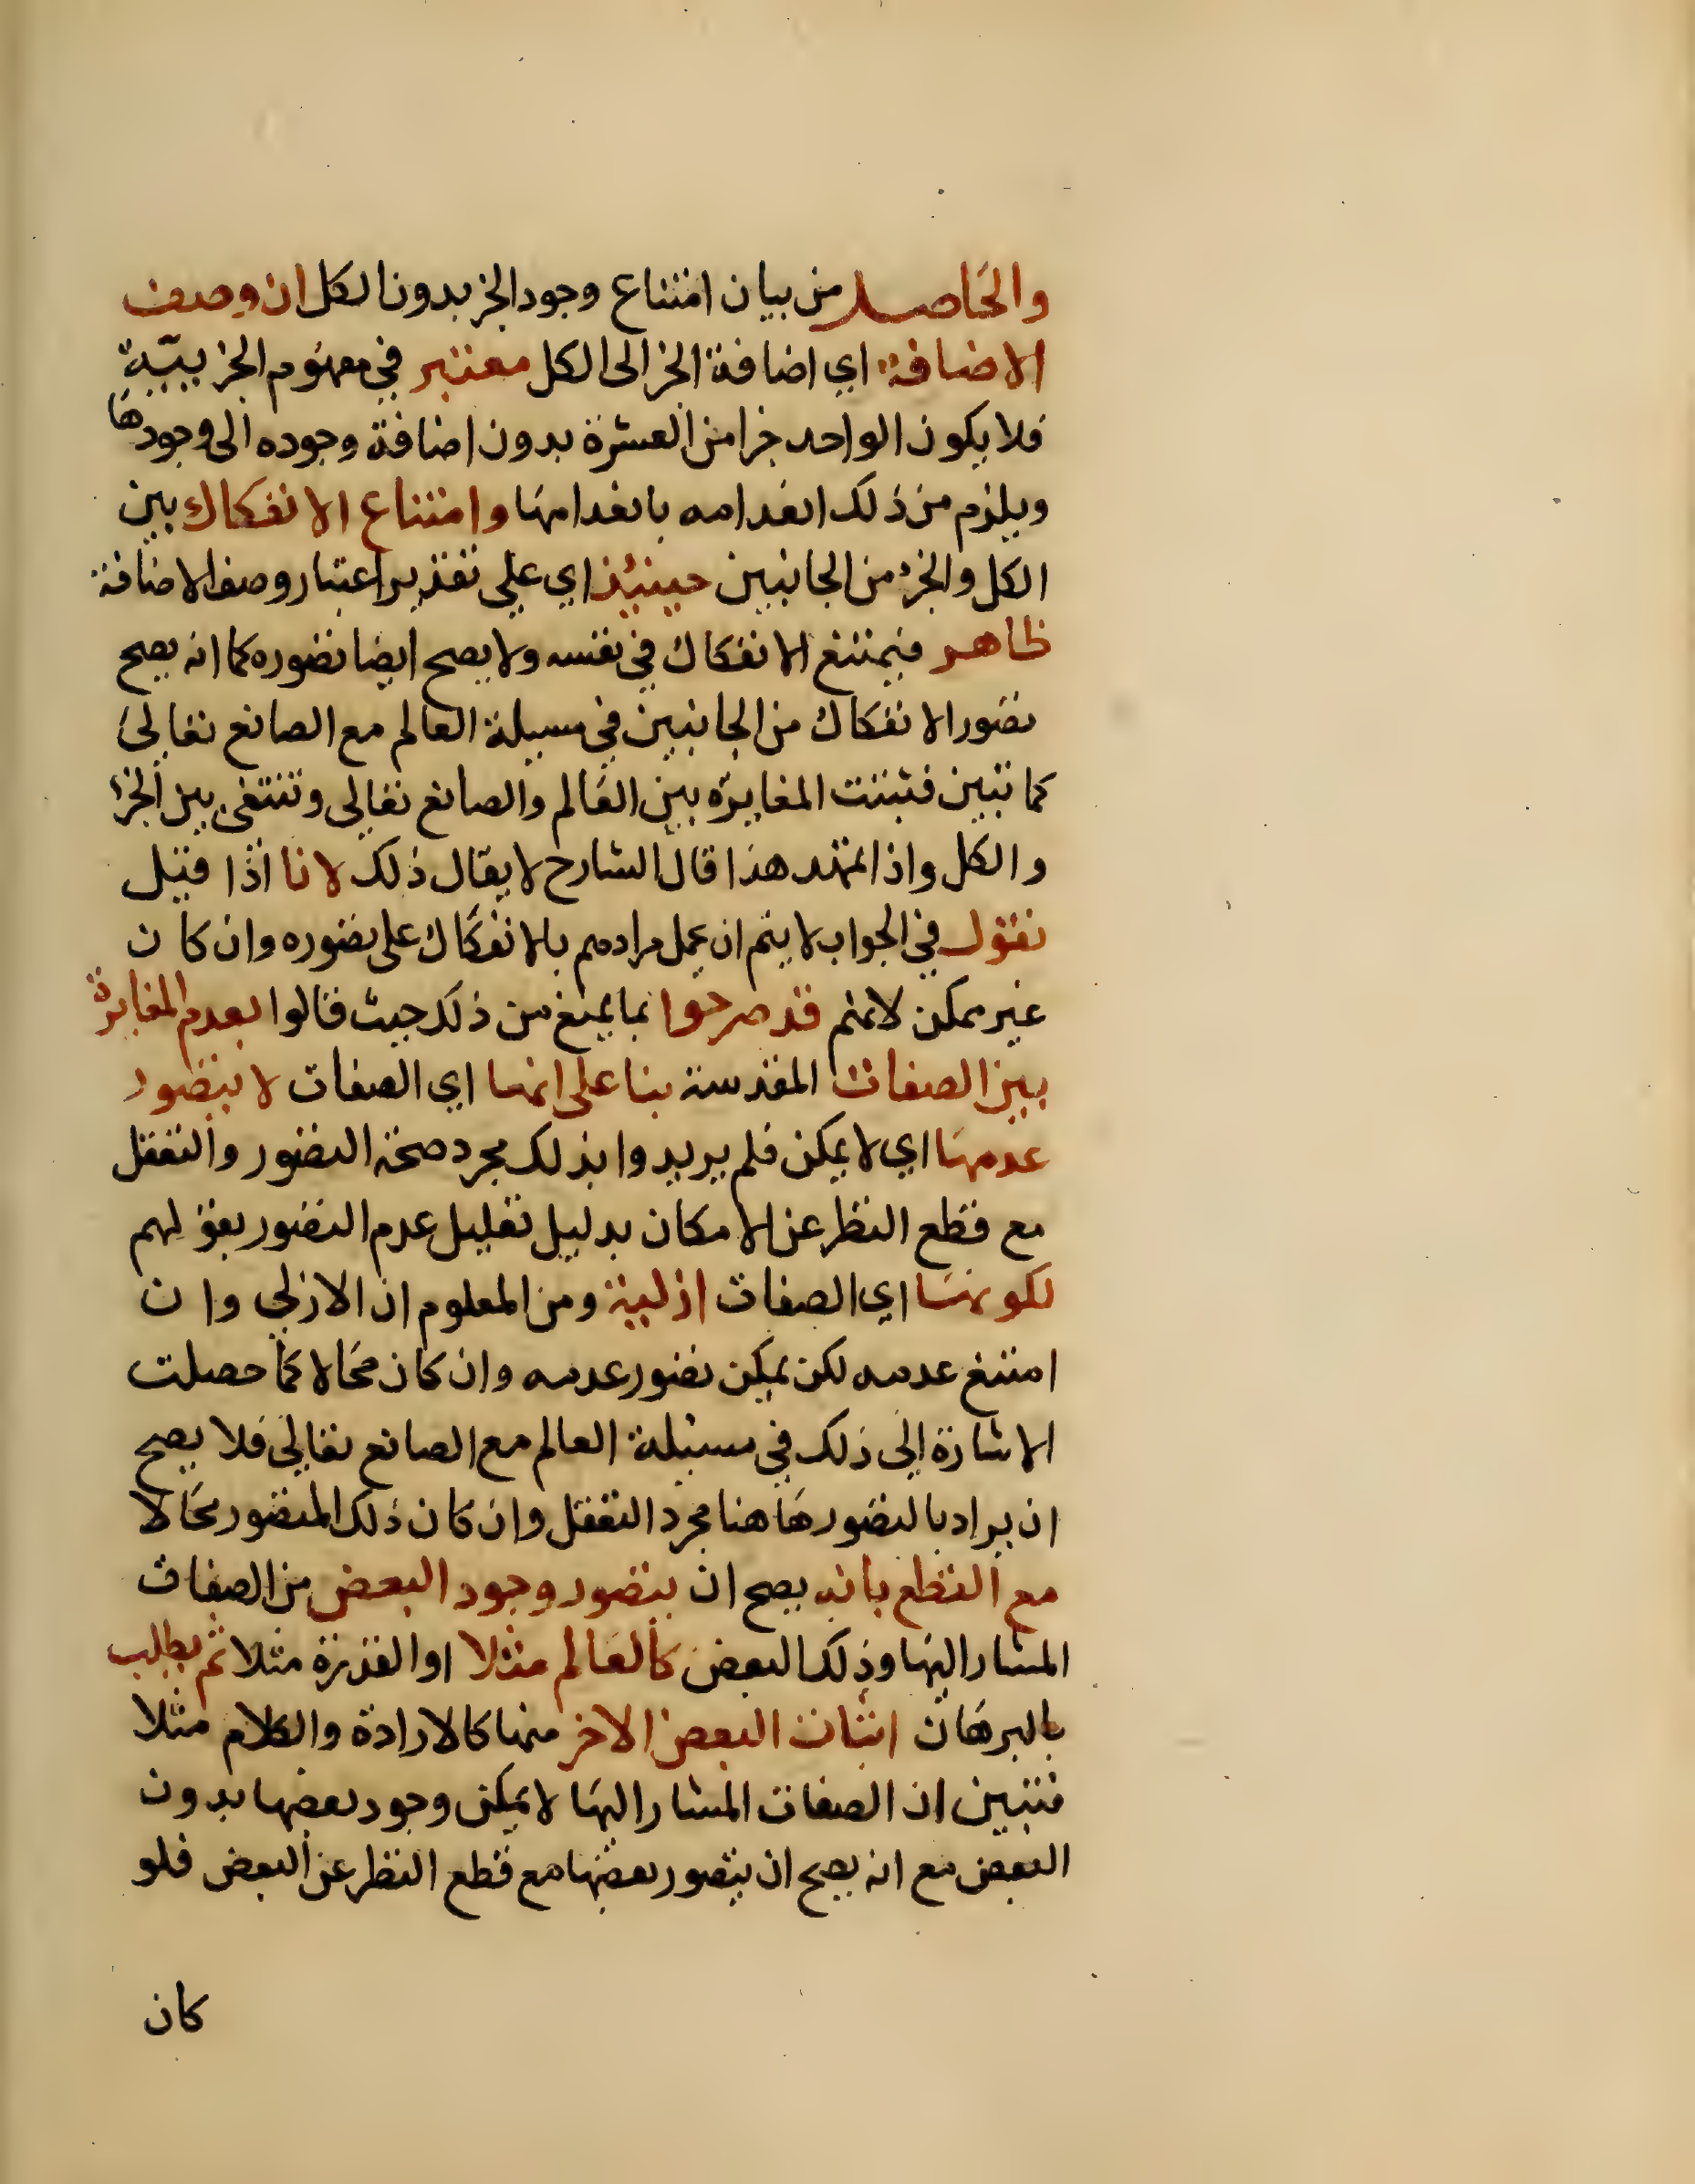 والحاصل من بيان امتناع وجود الجز بدون الكل ان وصف
الاضافة اي اضافة الجز الى الكل معتبر في مفهوم الجزييية
فلا يكون الواحد جزا من العشرة بدون اضافة وجوده الى وجودها
ويلزم من ذلك انعدامه بانعدامها وامتناع الانفكاك بين
الكل والجزء من الجانبين حينيئذ اي على تقدير اعتبار وصف الاضافة
ظاهر فيمتنع الانفكاك في نفسه ولا يصح ايضا تصوره كما انه يصح
تصور الانفكاك من الجانبين في مسيلة العالم مع الصانع تعالى
كما تبين فتبتت المغايرة بين العالم والصانع تعالى وتنتفي بين الجزء
والكل واذا تمهد هذا قال الشارح لا يقال ذلك لانا اذا قيل
نقول في الجواب لا يتم ان يحمل مرادهم بالانفكاك على تصوره وان كان
غير ممكن لانهم قد صرحوا بما يمنع من ذلك حيث قالوا بعدم المغايرة
بين الصفات المقدسة بنا على انها اي الصفات لا يتصور
عدمها اي لا يمكن فلم يريدوا بذلك مجرد صحة التصور والتعقل
مع قطع النظر عن الامكان بدليل تعليل عدم التصور بقولهم
لكونها اي الصفات ازلية ومن المعلوم ان الازلي وان
امتنع عدمه لكن يمكن تصور عدمه وان كان محالا كما حصلت
الاشارة الى ذلك في مسئيلة العالم مع الصانع تعالى فلا يصح
ان يراد بالتصور هاهنا مجرد التعقل وان كان ذلك المتصور محالا
مع القطع بانه يصح ان يتصور وجود البعض من الصفات
المشار اليها وذلك البعض كالعالم مثلا او القدرة مثلا ثم يطلب
بالبرهان اثبات البعض الاخر منها كالارادة والكلام مثلا
فتبين ان الصفات المشار اليها لا يمكن وجود بعضها بدون
البعض مع انه يصح ان يتصور بعضها مع قطع النظر عن البعض فلو
كان